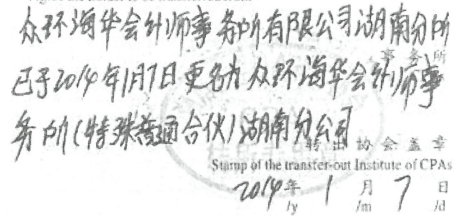 众环海华会计师事务所有限公司湖南分所
事务所
已于2014年1月7日更名为众环海华会计师事
务所(特殊普通合伙)湖南分公司
转出协会盖章
Stamp of the transfer-out Institute of CPAs
2014年 1月 7日
/y /m /d